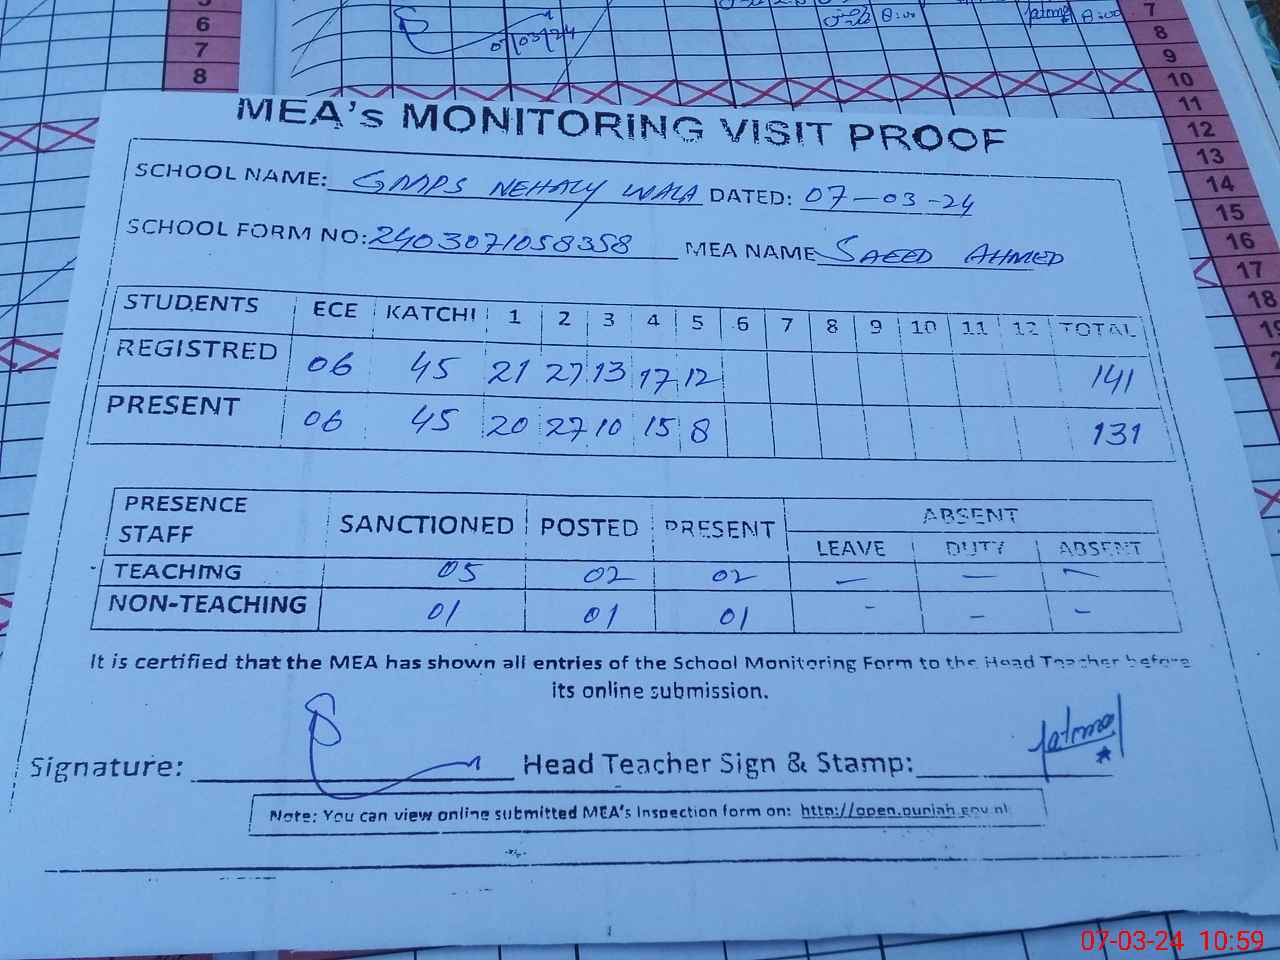 6
7
8
07/03/24
8:00
8:00
7
8
9
10
11
12
13
14
15
16
17
18
MEA's MONITORING VISIT PROOF
SCHOOL NAME: GMPS NEHALY WALA DATED: 07-03-24
SCHOOL FORM NO: 2403071058358 MEA NAME SAEED AHMED
STUDENTS ECE KATCHI 1 2 3 4 5 6 7 8 9 10 11 12 TOTAL
REGISTRED 06 45 21 27 13 17 12 141
PRESENT 06 45 20 27 10 15 8 131
PRESENCE STAFF SANCTIONED POSTED PRESENT ABSENT
LEAVE DUTY ABSENT
TEACHING 05 02 02 — — —
NON-TEACHING 01 01 01 - - -
It is certified that the MEA has shown all entries of the School Monitoring Form to the Head Teacher before
its online submission.
Signature: Head Teacher Sign & Stamp:
Note: You can view online submitted MEA's Inspection form on: http://open.punjab.gov.nl
07-03-24 10:59